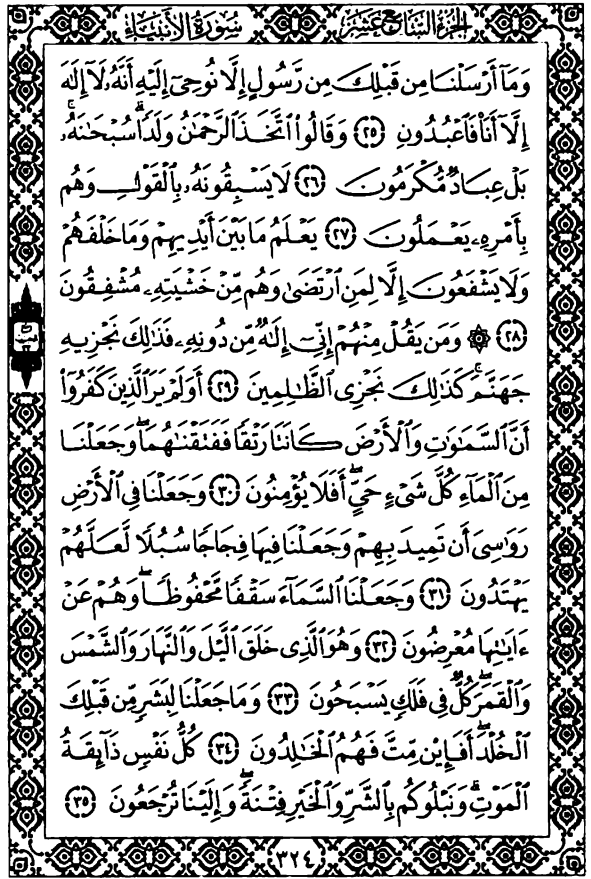 الجزء السابع عشر سورة الأنبياء
وَمَآ أَرْسَلْنَا مِن قَبْلِكَ مِن رَّسُولٍ إِلَّا نُوحِىٓ إِلَيْهِ أَنَّهُۥ لَآ إِلَٰهَ
إِلَّآ أَنَا۠ فَٱعْبُدُونِ ٢٥ وَقَالُوا۟ ٱتَّخَذَ ٱلرَّحْمَٰنُ وَلَدًا ۗ سُبْحَٰنَهُۥ ۚ
بَلْ عِبَادٌ مُّكْرَمُونَ ٢٦ لَا يَسْبِقُونَهُۥ بِٱلْقَوْلِ وَهُم
بِأَمْرِهِۦ يَعْمَلُونَ ٢٧ يَعْلَمُ مَا بَيْنَ أَيْدِيهِمْ وَمَا خَلْفَهُمْ
وَلَا يَشْفَعُونَ إِلَّا لِمَنِ ٱرْتَضَىٰ وَهُم مِّنْ خَشْيَتِهِۦ مُشْفِقُونَ
٢٨ ۞ وَمَن يَقُلْ مِنْهُمْ إِنِّىٓ إِلَٰهٌ مِّن دُونِهِۦ فَذَٰلِكَ نَجْزِيهِ
جَهَنَّمَ ۚ كَذَٰلِكَ نَجْزِى ٱلظَّٰلِمِينَ ٢٩ أَوَلَمْ يَرَ ٱلَّذِينَ كَفَرُوٓا۟
أَنَّ ٱلسَّمَٰوَٰتِ وَٱلْأَرْضَ كَانَتَا رَتْقًا فَفَتَقْنَٰهُمَا ۖ وَجَعَلْنَا
مِنَ ٱلْمَآءِ كُلَّ شَىْءٍ حَىٍّ ۖ أَفَلَا يُؤْمِنُونَ ٣٠ وَجَعَلْنَا فِى ٱلْأَرْضِ
رَوَٰسِىَ أَن تَمِيدَ بِهِمْ وَجَعَلْنَا فِيهَا فِجَاجًا سُبُلًا لَّعَلَّهُمْ
يَهْتَدُونَ ٣١ وَجَعَلْنَا ٱلسَّمَآءَ سَقْفًا مَّحْفُوظًا ۖ وَهُمْ عَنْ
ءَايَٰتِهَا مُعْرِضُونَ ٣٢ وَهُوَ ٱلَّذِى خَلَقَ ٱلَّيْلَ وَٱلنَّهَارَ وَٱلشَّمْسَ
وَٱلْقَمَرَ ۖ كُلٌّ فِى فَلَكٍ يَسْبَحُونَ ٣٣ وَمَا جَعَلْنَا لِبَشَرٍ مِّن قَبْلِكَ
ٱلْخُلْدَ ۖ أَفَإِي۟ن مِّتَّ فَهُمُ ٱلْخَٰلِدُونَ ٣٤ كُلُّ نَفْسٍ ذَآئِقَةُ
ٱلْمَوْتِ ۗ وَنَبْلُوكُم بِٱلشَّرِّ وَٱلْخَيْرِ فِتْنَةً ۖ وَإِلَيْنَا تُرْجَعُونَ ٣٥
٣٢٤